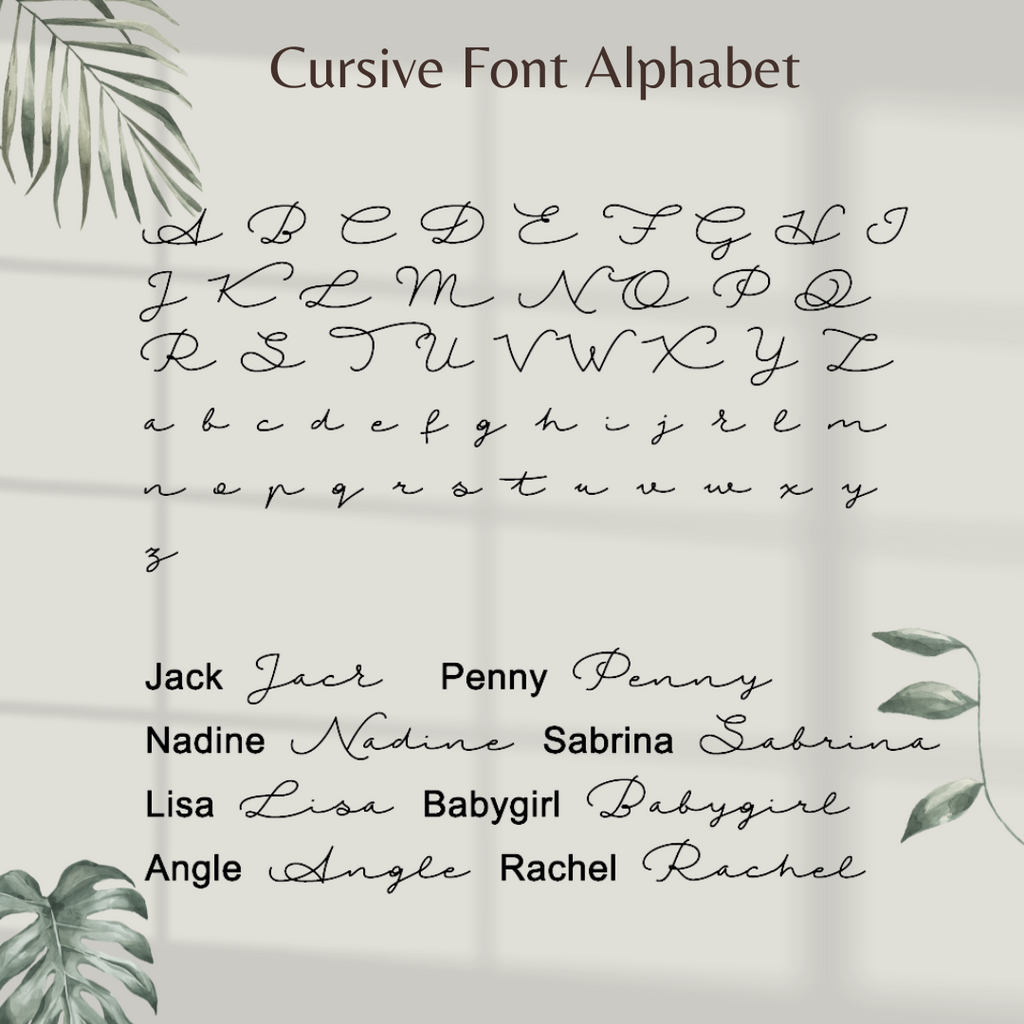 Cursive Font Alphabet
A B C D E F G H I
J K L M N O P Q
R S T U V W X Y Z
a b c d e f g h i j k l m
n o p q r s t u v w x y
z
Jack Jack Penny Penny
Nadine Nadine Sabrina Sabrina
Lisa Lisa Babygirl Babygirl
Angle Angle Rachel Rachel